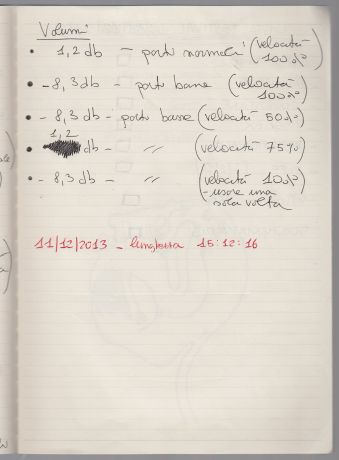 Volumi
• 1,2 db - parti normali (velocità 100%)
• - 8,3 db - parti basse (velocità 100%)
• - 8,3 db - parti basse (velocità 50%)
• 1,2 db - " (velocità 75%)
• - 8,3 db - " (velocità 100%)
- usare una
sola volta
11/12/2013 - lunghezza 15:12:16